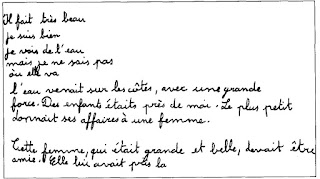 Il fait très beau
je suis bien
je vois de l'eau
mais je ne sais pas
où elle va
l'eau venait sur les côtes, avec une grande
force. Des enfants étaits près de moi. Le plus petit
donnait ses affaires à une femme.
Cette femme, qui était grande et belle, devait être
amie. Elle lui avait pris la